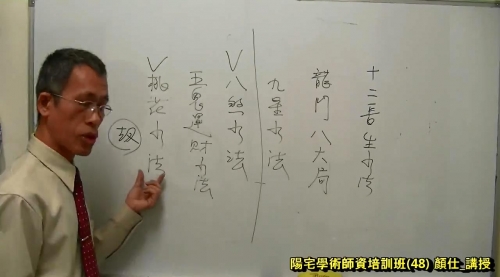 十二長生水法
龍門八大局
九星水法
V八煞水法
五鬼運財水法
V桃花水法
陽宅學術師資培訓班(48) 顏仕_講授